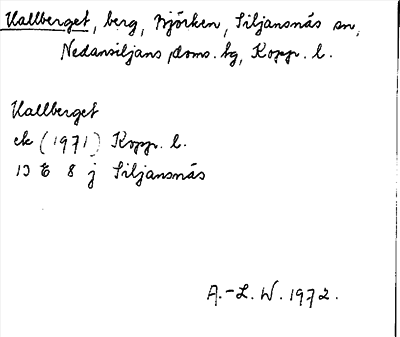 Hallberget, berg, Björken, Siljansnäs sn,
Nedansiljans doms. tg, Kopp. l.
Hallberget
ek (1971) Kopp. l.
13 E 8 j Siljansnäs
A.-L. W. 1972.